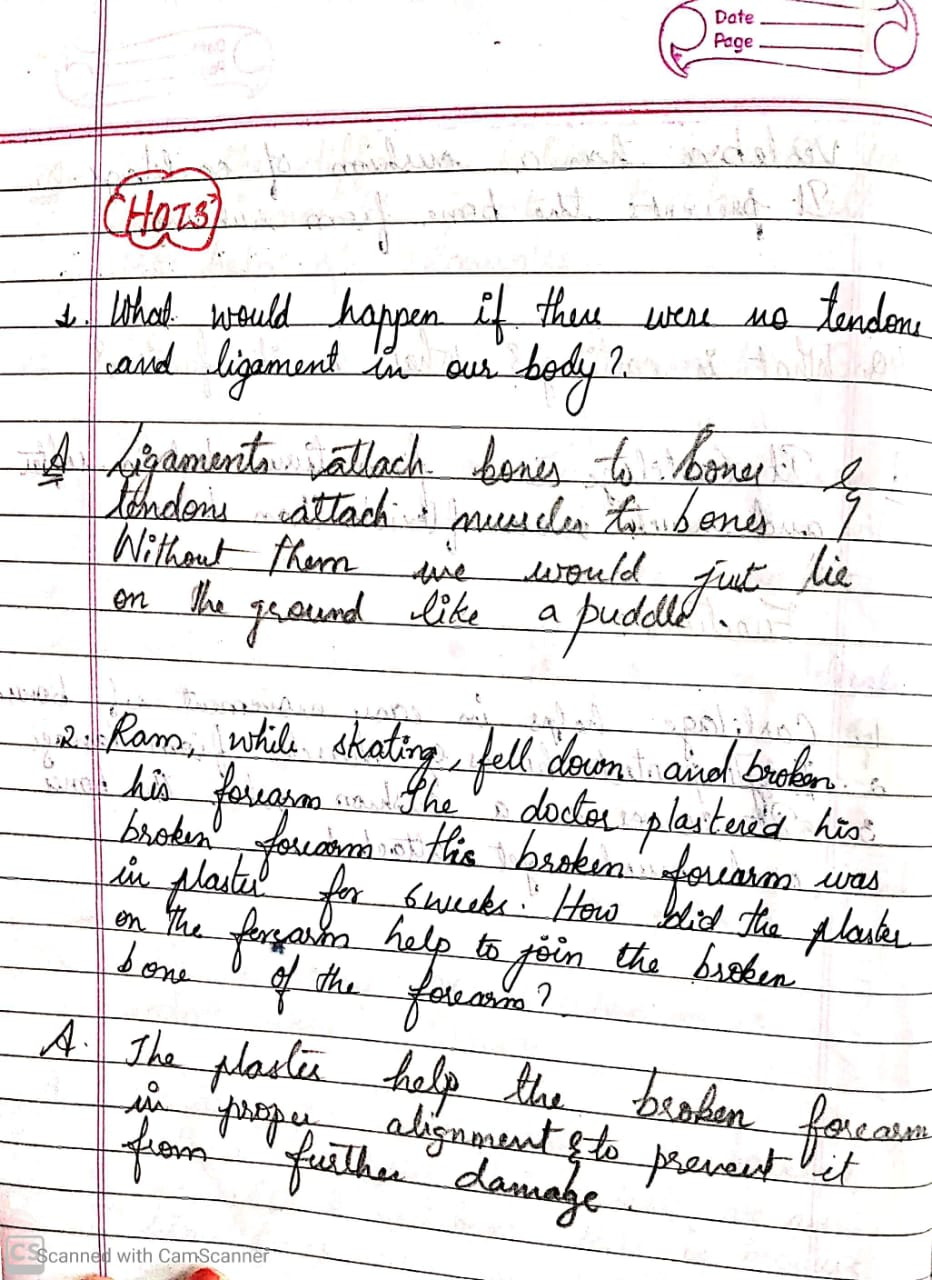 Date
Page
"HOTS"
1. What would happen if there were no tendons
and ligament in our body?
A Ligaments attach bones to bones &
tendons attach muscles to bones.
Without them we would just lie
on the ground like a puddle.
2. Ram, while skating, fell down and broken
his forearm The doctor plastered his
broken forearm this broken forearm was
in plaster for 6 weeks. How did the plaster
on the forearm help to join the broken
bone of the forearm?
A. The plaster help the broken forearm
in proper alignment & to prevent it
from further damage.
CS Scanned with CamScanner